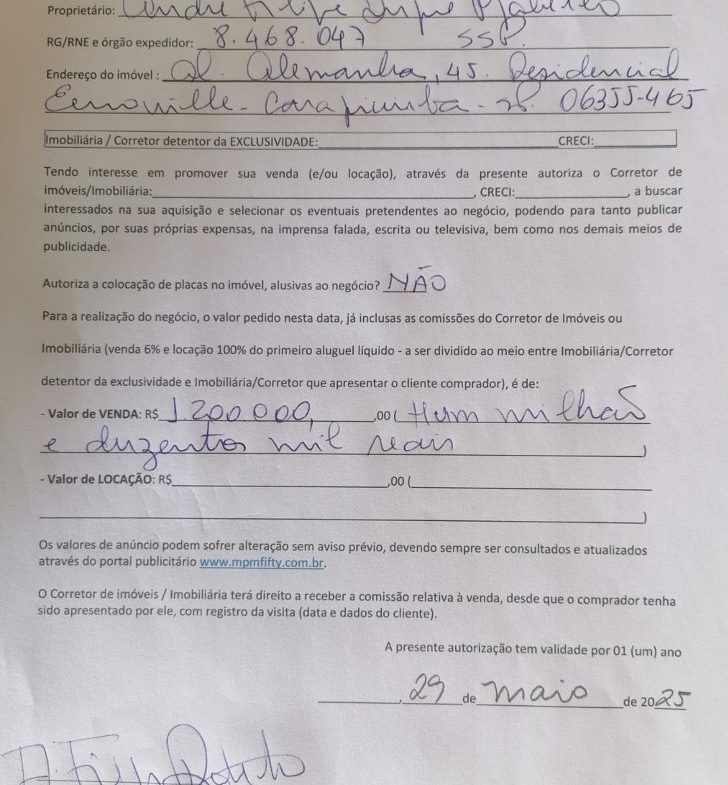 Proprietário: André Filipe
RG/RNE e órgão expedidor: 8.468.047 SSP.
Endereço do imóvel : Al. Alemanha, 45. Residencial
- Carapicuiba - SP. 06355-465
Imobiliária / Corretor detentor da EXCLUSIVIDADE:____ CRECI:____
Tendo interesse em promover sua venda (e/ou locação), através da presente autoriza o Corretor de
imóveis/Imobiliária:____, CRECI:____, a buscar
interessados na sua aquisição e selecionar os eventuais pretendentes ao negócio, podendo para tanto publicar
anúncios, por suas próprias expensas, na imprensa falada, escrita ou televisiva, bem como nos demais meios de
publicidade.
Autoriza a colocação de placas no imóvel, alusivas ao negócio? NÃO
Para a realização do negócio, o valor pedido nesta data, já inclusas as comissões do Corretor de Imóveis ou
Imobiliária (venda 6% e locação 100% do primeiro aluguel líquido - a ser dividido ao meio entre Imobiliária/Corretor
detentor da exclusividade e Imobiliária/Corretor que apresentar o cliente comprador), é de:
- Valor de VENDA: R$ 1.200.000, ,00 ( Hum milhão
e duzentos mil reais )
- Valor de LOCAÇÃO: R$____,00 (____
____)
Os valores de anúncio podem sofrer alteração sem aviso prévio, devendo sempre ser consultados e atualizados
através do portal publicitário www.mpmfifty.com.br.
O Corretor de imóveis / Imobiliária terá direito a receber a comissão relativa à venda, desde que o comprador tenha
sido apresentado por ele, com registro da visita (data e dados do cliente).
A presente autorização tem validade por 01 (um) ano
____, 29 de maio de 2025